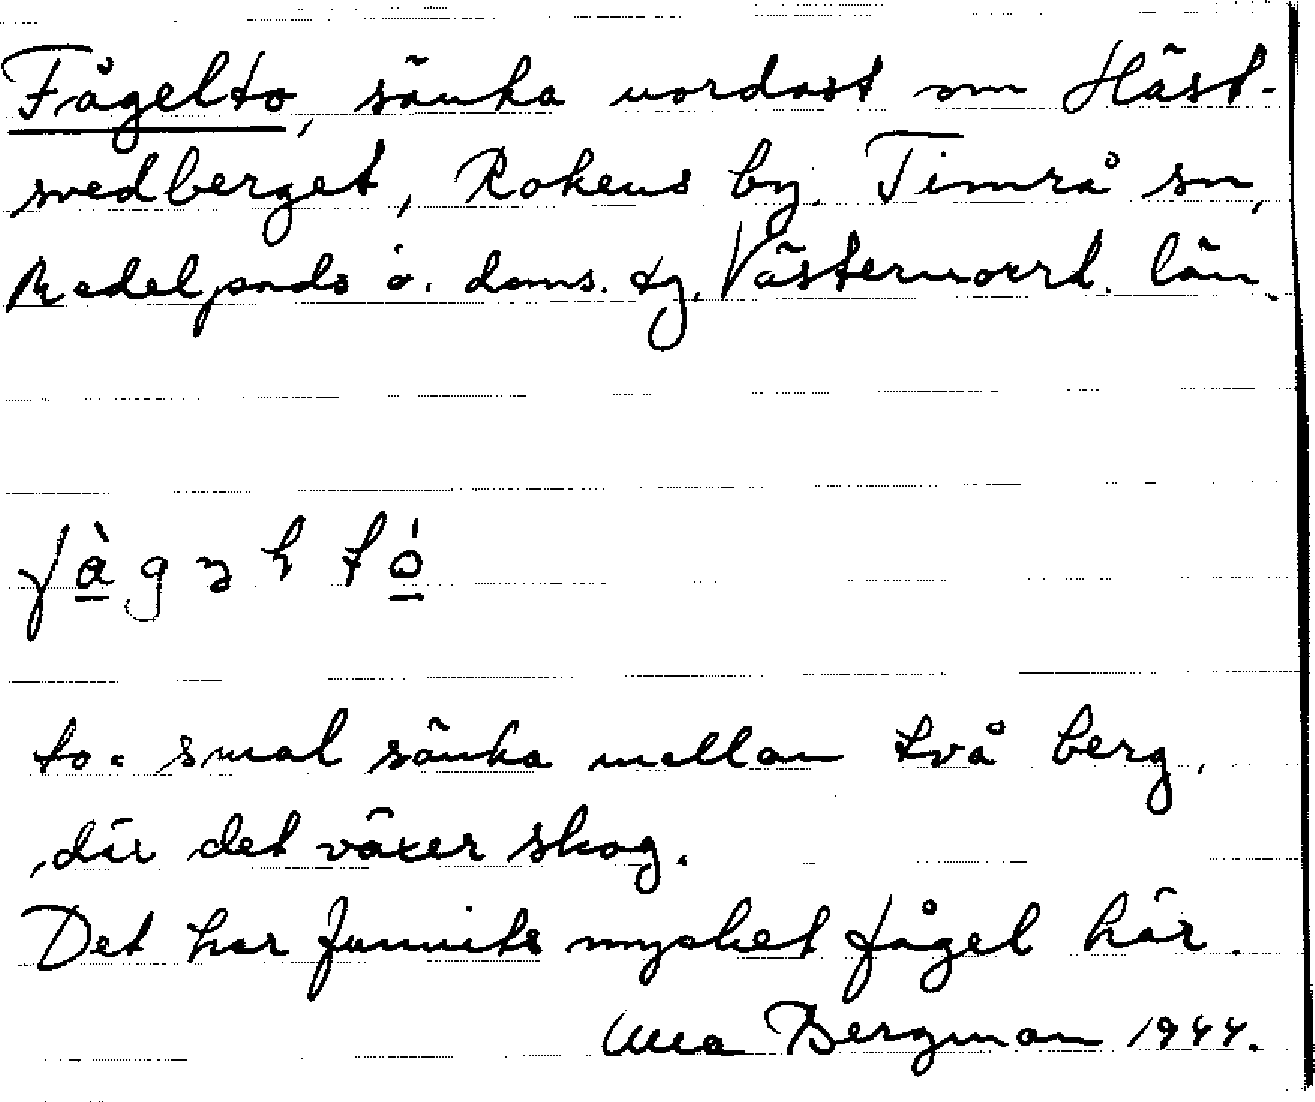 Fågelto, sänka nordost om Häst-
svedberget, Rokens by. Timrå sn,
Medelpads ö. doms. tg. Västernorrl. län.
fàgəl tó
to = smal sänka mellan två berg,
där det växer skog.
Det har funnits mycket fågel här.
Ulla Bergman 1944.